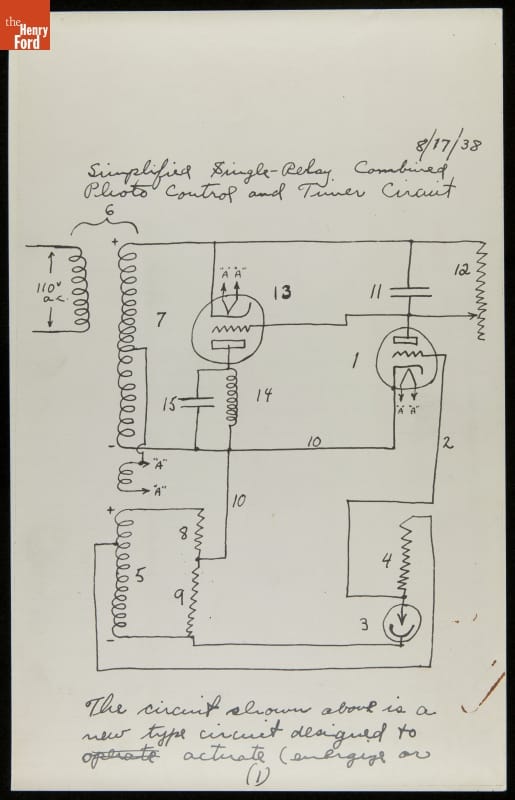 the
Henry
Ford
8/17/38
Simplified Single-Relay Combined
Photo Control and Timer Circuit
6
+
"A" "A"
110 v
a.c.
7
13
11
12
1
15
14
"A" "A"
-
10
2
"A"
"A"
+
10
8
4
5
9
3
-
The circuit shown above is a
new type circuit designed to
operate actuate (energize or
(1)